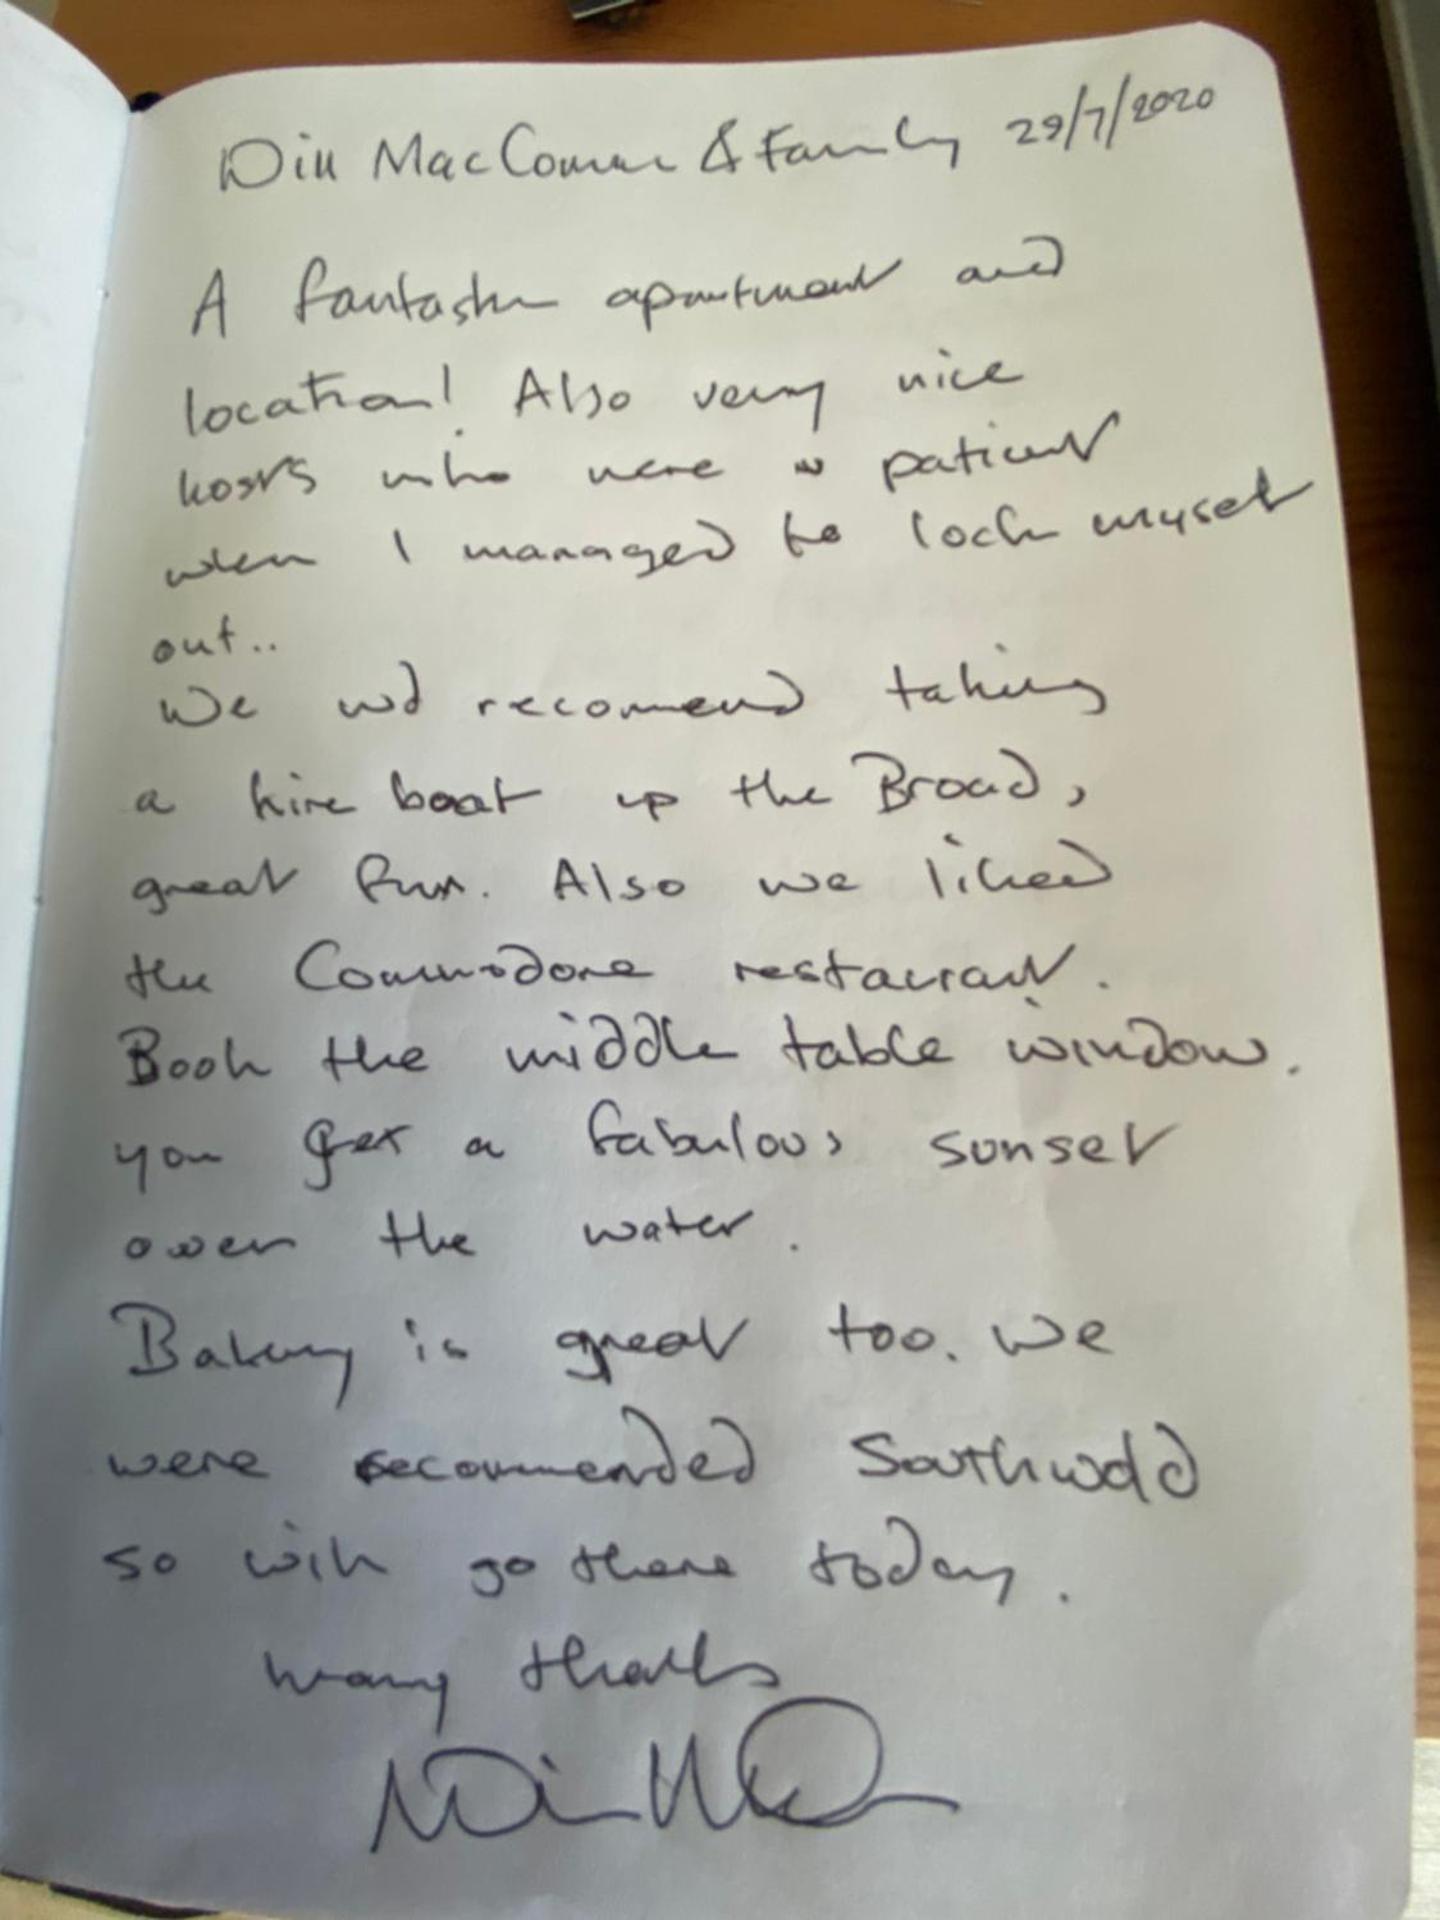 & Family 29/7/2020
A fantastic apartment and
location! Also very nice
hosts who were patient
when I managed to lock myself
out..
We wd recomend taking
a hire boat up the Broad,
great fun. Also we liked
the Commodore restaurant.
Book the middle table window.
you get a fabulous sunset
over the water.
Bakery is great too. We
were recommended Southwold
so will go there today.
Many thanks